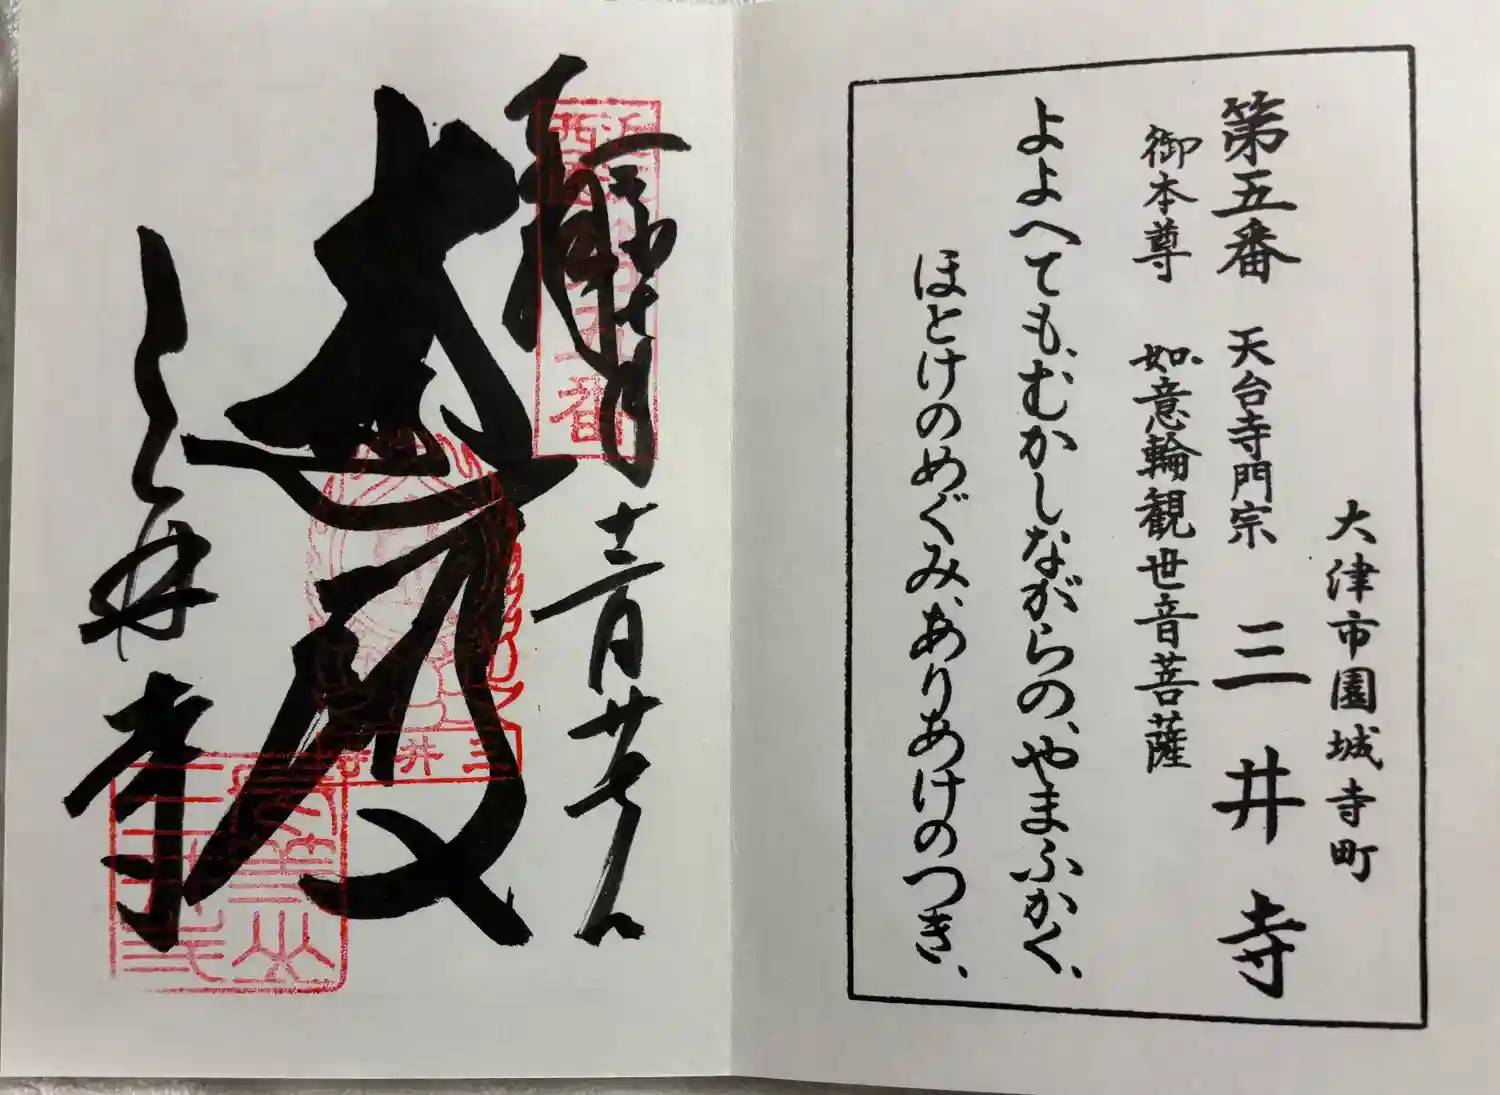 大津市園城寺町
第五番 天台寺門宗 三井寺
御本尊 如意輪観世音菩薩
よよへても、むかしながらの、やまふかく、
ほとけのめぐみ、ありあけのつき、
近江西国第五番
大悲殿
三井寺
三井寺